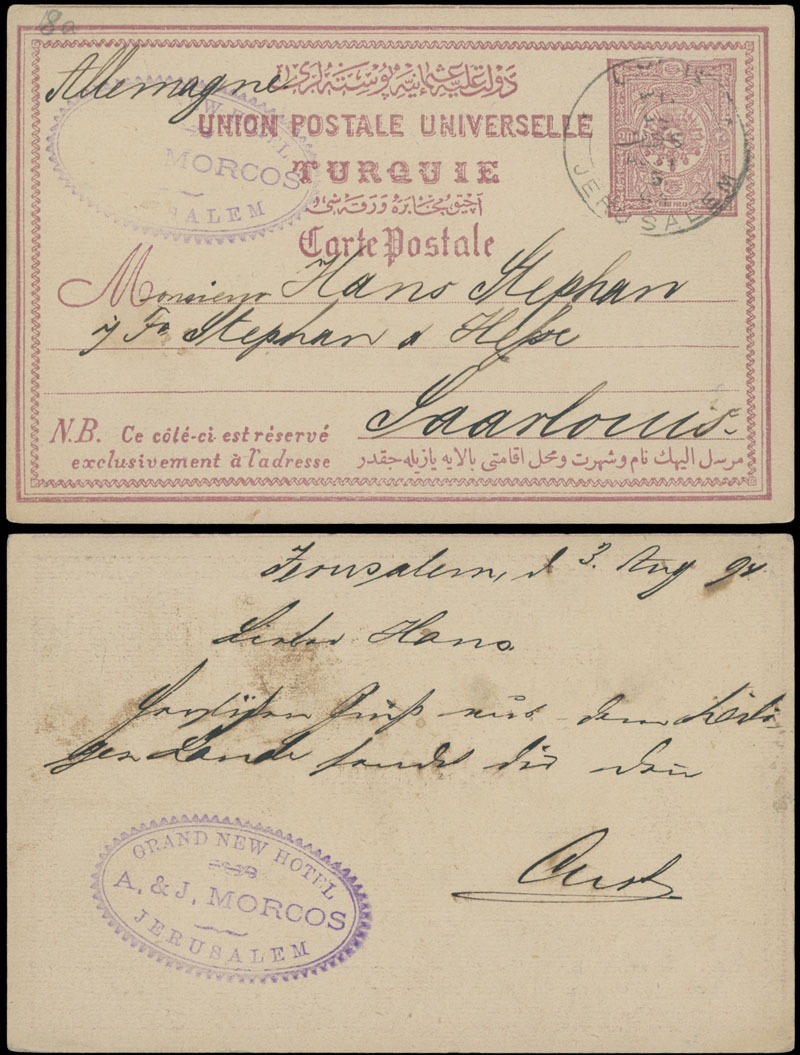 8a
Allemagne
دولت عليه عثمانيه پوسته لرى
UNION POSTALE UNIVERSELLE
TURQUIE
Carte Postale
MORCOS
SALEM
JERUSALEM
Monsieur Hans Stephan
Stephan
Saarlouis
N.B. Ce côté-ci est réservé
exclusivement à l'adresse
مرسل اليهك نام و شهرت و محل اقامتى بالايه يازيله جقدر
Jerusalem, d 3. Aug 94
Lieber Hans
Herzlichen Gruß aus dem Heili-
gen Lande sendet dir dein
GRAND NEW HOTEL
A. & J. MORCOS
JERUSALEM